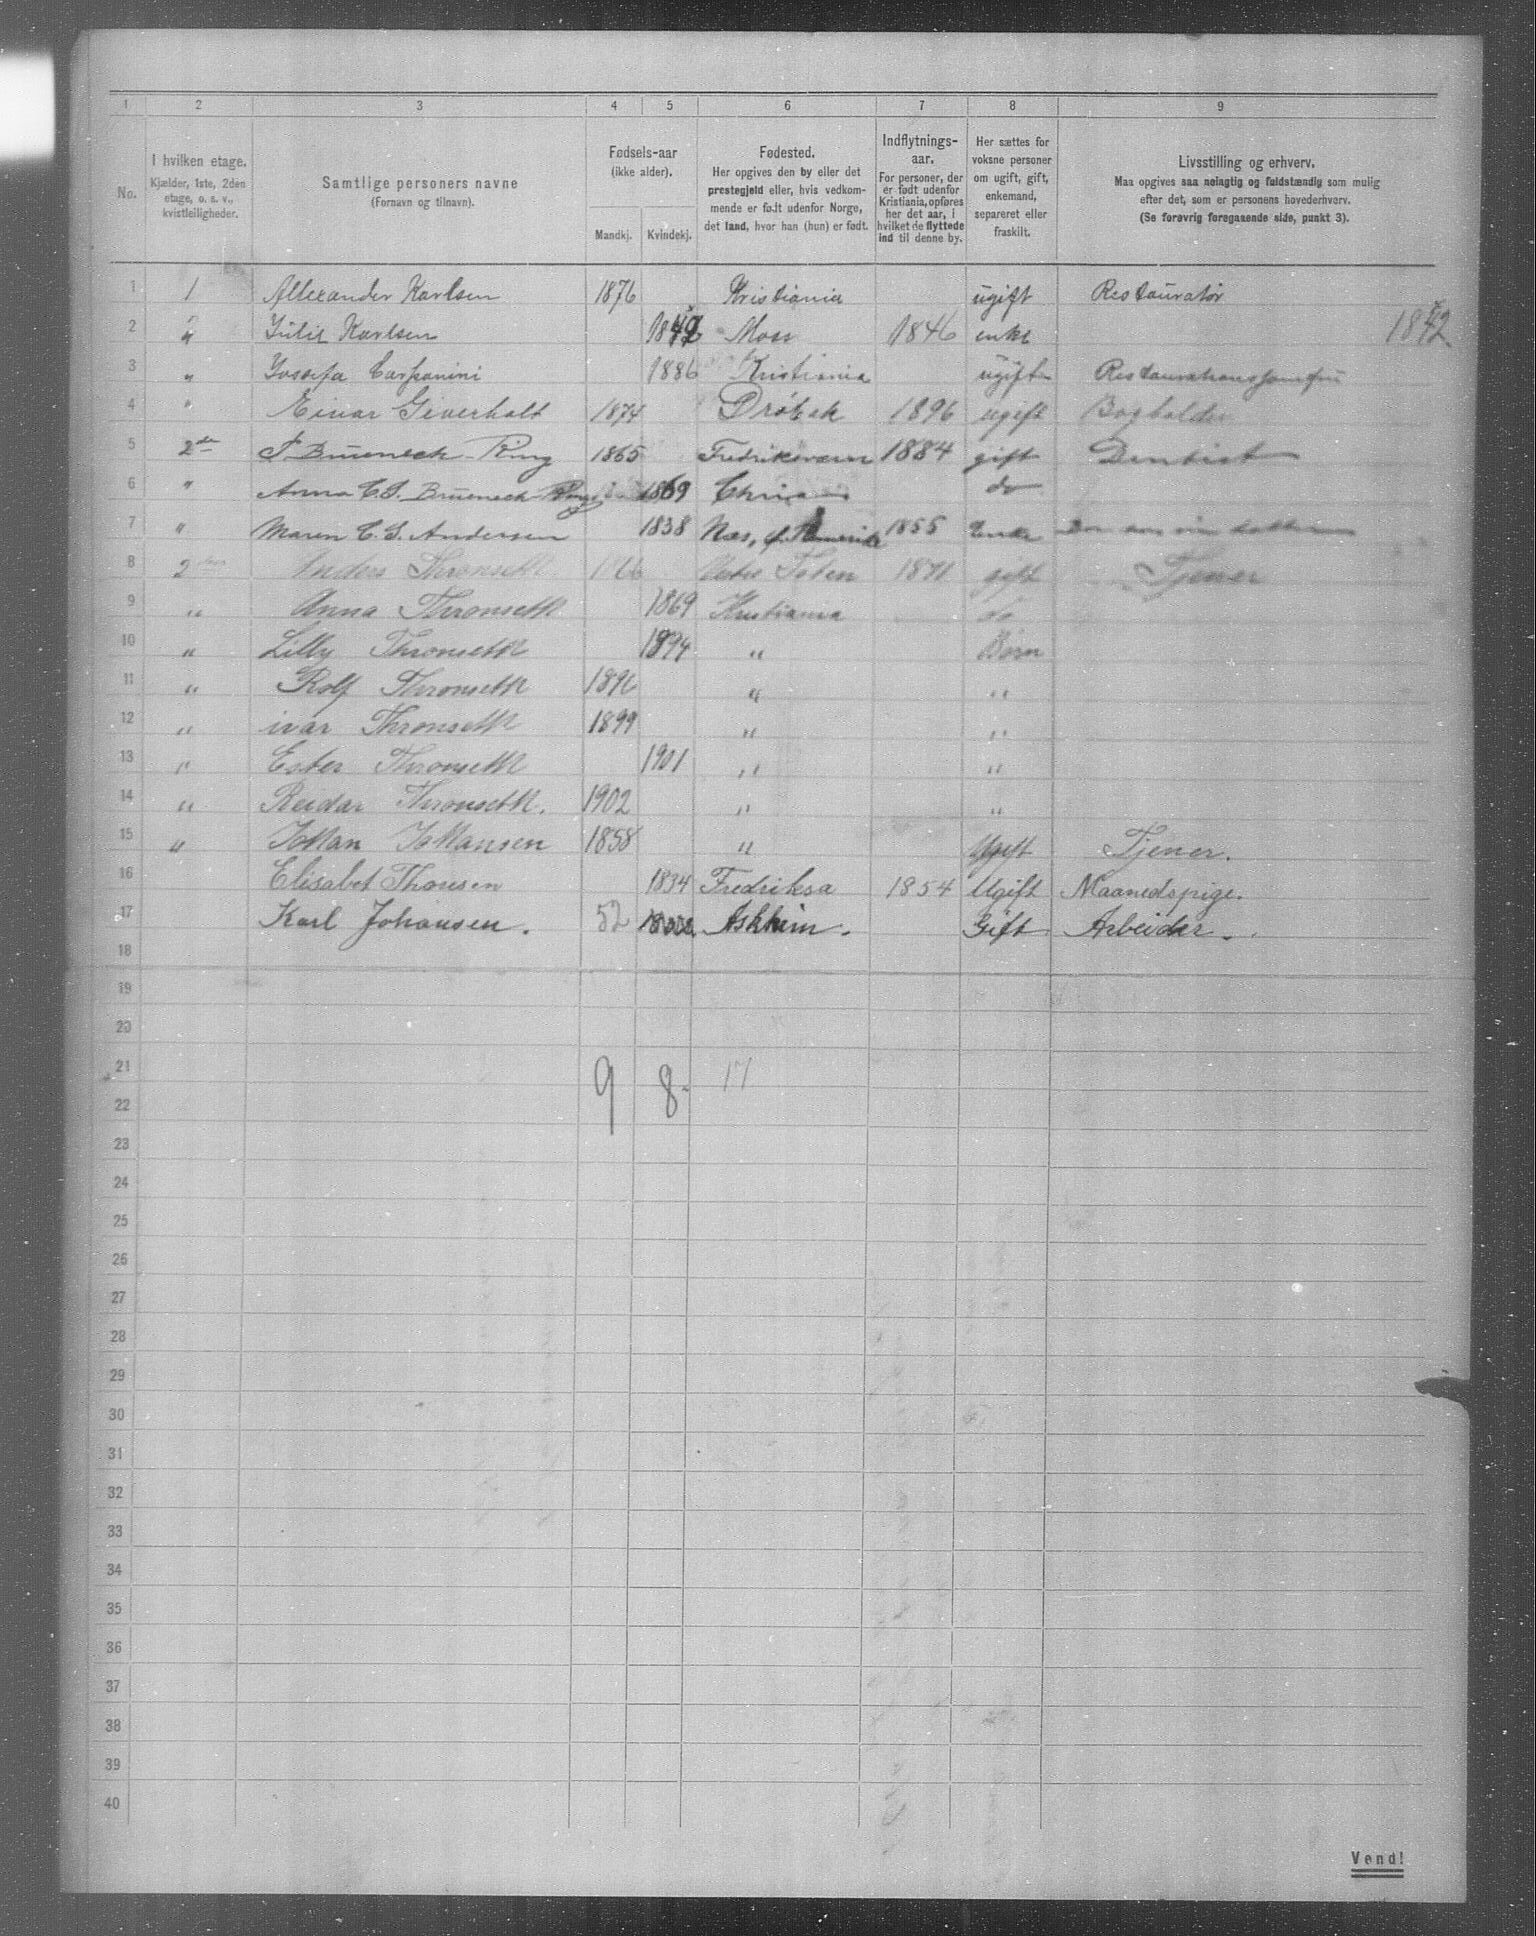 1 2 3 4 5 6 7 8 9
No. I hvilken etage. Kjælder, 1ste, 2den etage, o. s. v., kvistleiligheder. Samtlige personers navne (Fornavn og tilnavn). Fødsels-aar (ikke alder). Mandkj. Kvindekj. Fødested. Her opgives den by eller det prestegjeld eller, hvis vedkommende er født udenfor Norge, det land, hvor han (hun) er født. Indflytnings-aar. For personer, der er født udenfor Kristiania, opføres her det aar, i hvilket de flyttede ind til denne by. Her sættes for voksne personer om ugift, gift, enkemand, separeret eller fraskilt. Livsstilling og erhverv. Maa opgives saa nøiagtig og fuldstændig som mulig efter det, som er personens hovederhverv. (Se forøvrig foregaaende side, punkt 3).
1 1 Allexander Karlsen 1876 Kristiania ugift Restauratør
2 " Julie Karlsen Moss 1846 enke
3 " Josefa Carpanini 1886 Kristiania ugift Restaurationsjomfru
4 " Einar Giverholt 1874 Drøbak 1896 ugift Bogholder
5 2den Brünech Ring 1865 Fredriksværn 1884 gift Dentist
6 " Anna C. S. Brünech Ring 1869 do
7 " Maren C. S. Andersen 1838 Næs, 1855 Enke
8 2 Anders Thronseth 1871 gift Tjener
9 " Anna Thronseth 1869 Kristiania do
10 " Lilly Thronseth 1894 " Børn
11 " Rolf Thronseth 1896 " "
12 " ivar Thronseth 1899 " "
13 " Ester Thronseth 1901 " "
14 " Reidar Thronseth. 1902 " "
15 " 1858 " Ugift Tjener.
16 Elisabet Thoresen 1834 Fredriksa 1854 Ugift Maanedspige.
17 Karl Johansen. 52 Askhim. Gift Arbeider.
18
19
20
21 9 8 17
22
23
24
25
26
27
28
29
30
31
32
33
34
35
36
37
38
39
40
Vend!